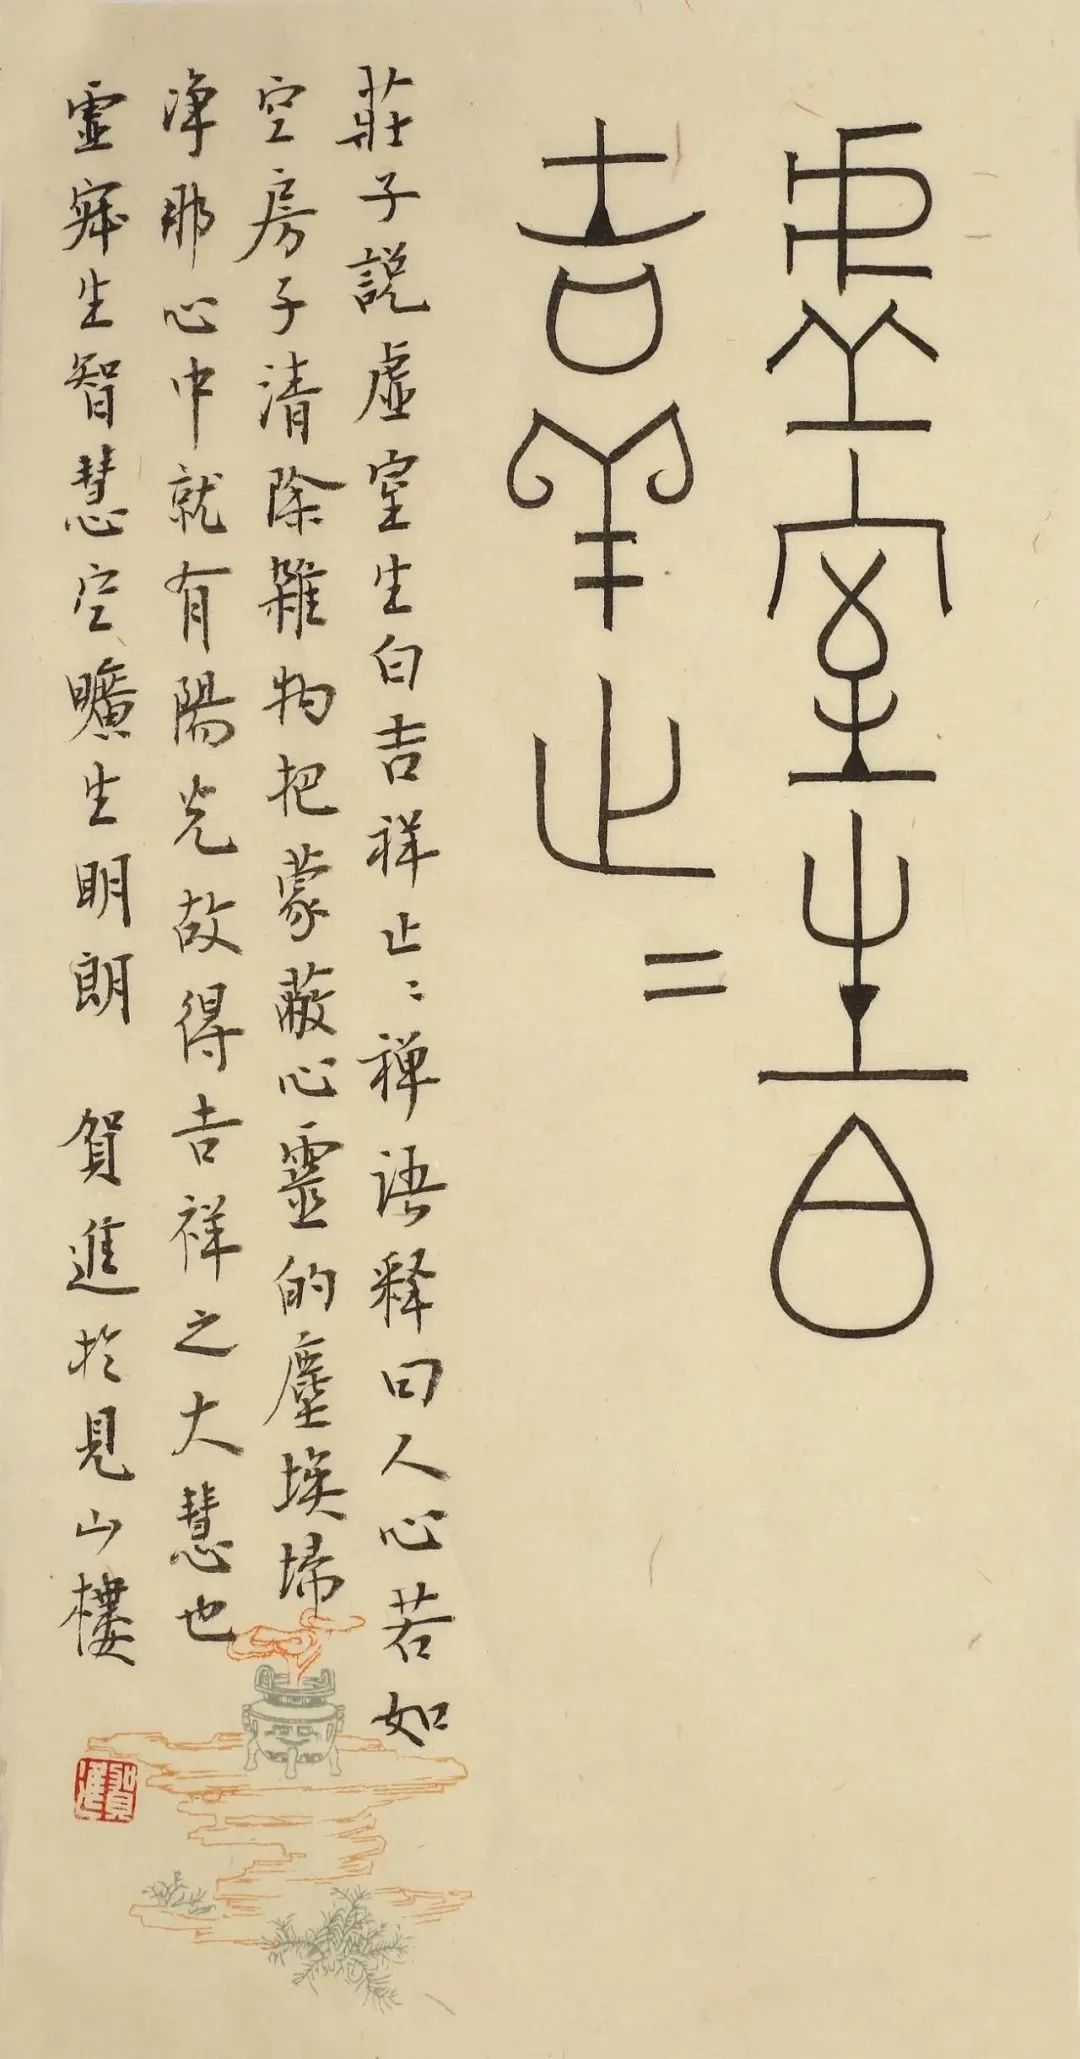 虚室生白
吉羊止=
莊子説虚室生白吉祥止止禅语释曰人心若如
空房子清除雜物把蒙蔽心靈的塵埃埽
净那心中就有陽光故得吉祥之大慧也
靈寂生智慧空曠生明朗 賀進於見山樓
賀進